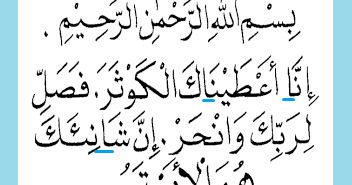 بِسْمِ اللهِ الرَّحْمٰنِ الرَّحِيْمِ .
إِنَّا أَعْطَيْنَاكَ الْكَوْثَرَ. فَصَلِّ
لِرَبِّكَ وَانْحَرْ. إِنَّ شَانِئَكَ
هُوَ الْأَبْتَرُ